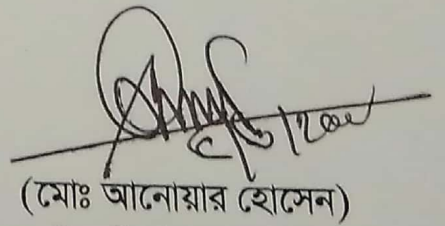 (মোঃ আনোয়ার হোসেন)